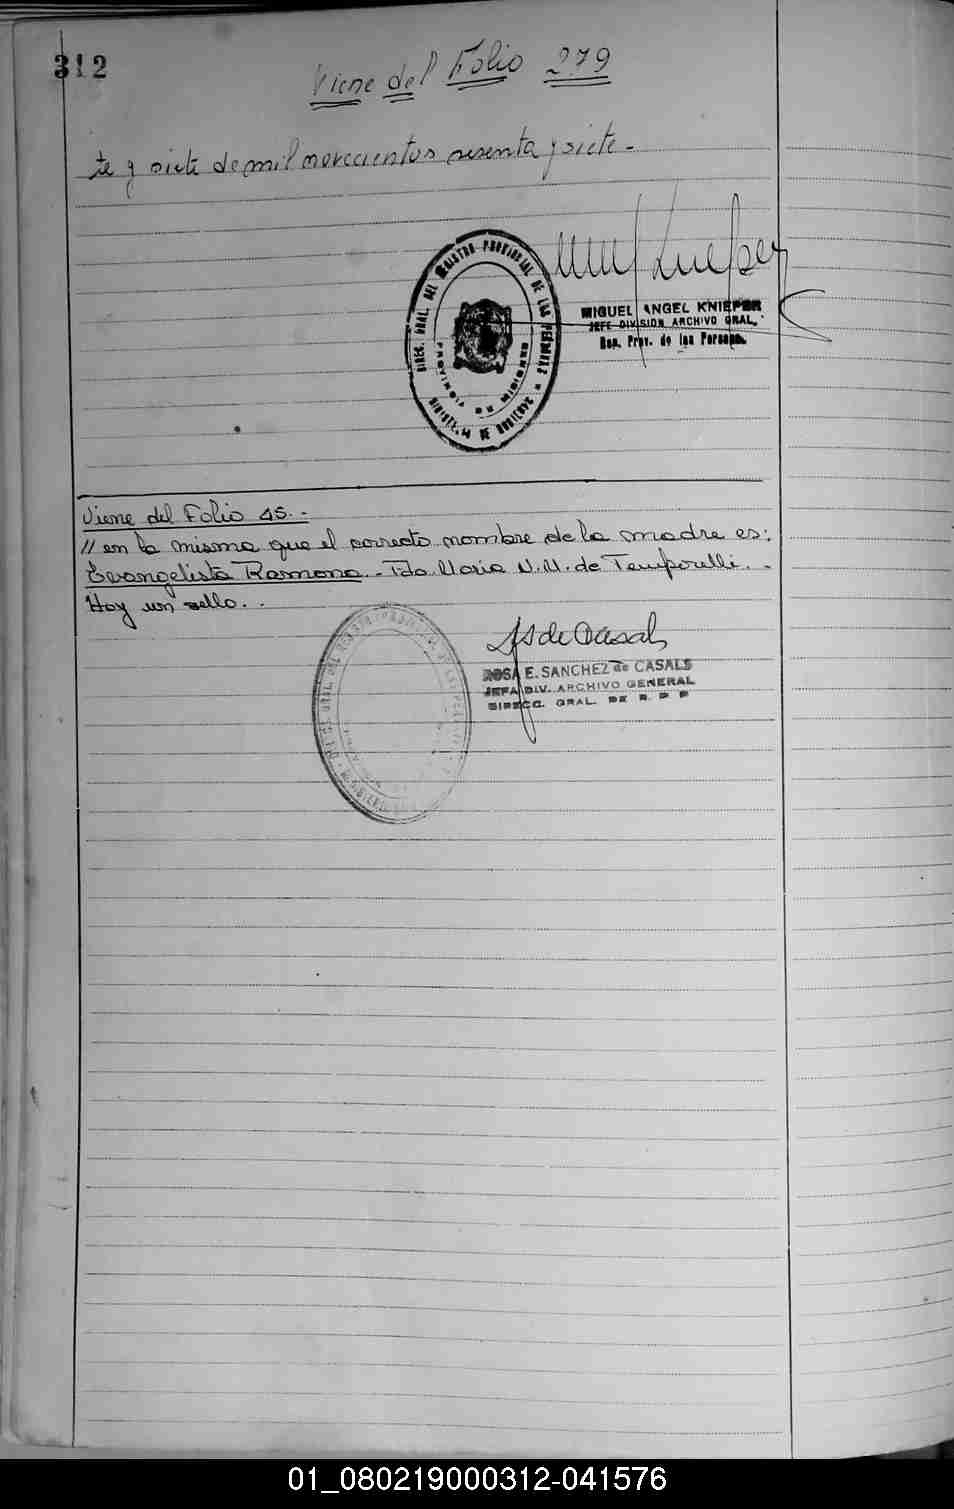 312
Viene del Folio 279
te y siete de mil novecientos sesenta y siete.-
DIREC. GRAL. DEL REGISTRO PROVINCIAL DE LAS PERSONAS
MIGUEL ANGEL KNIEPER
JEFE DIVISION ARCHIVO GRAL.
Reg. Prov. de las Personas
Viene del Folio 45.-
// en la misma que el correcto nombre de la madre es:
Evangelista Ramona.- Fdo Maria N.M. de Temporelli.-
Hay un sello..
RS de Casals
ROSA E. SANCHEZ de CASALS
JEFA DIV. ARCHIVO GENERAL
DIRECC. GRAL. DE R. P. P
01_080219000312-041576